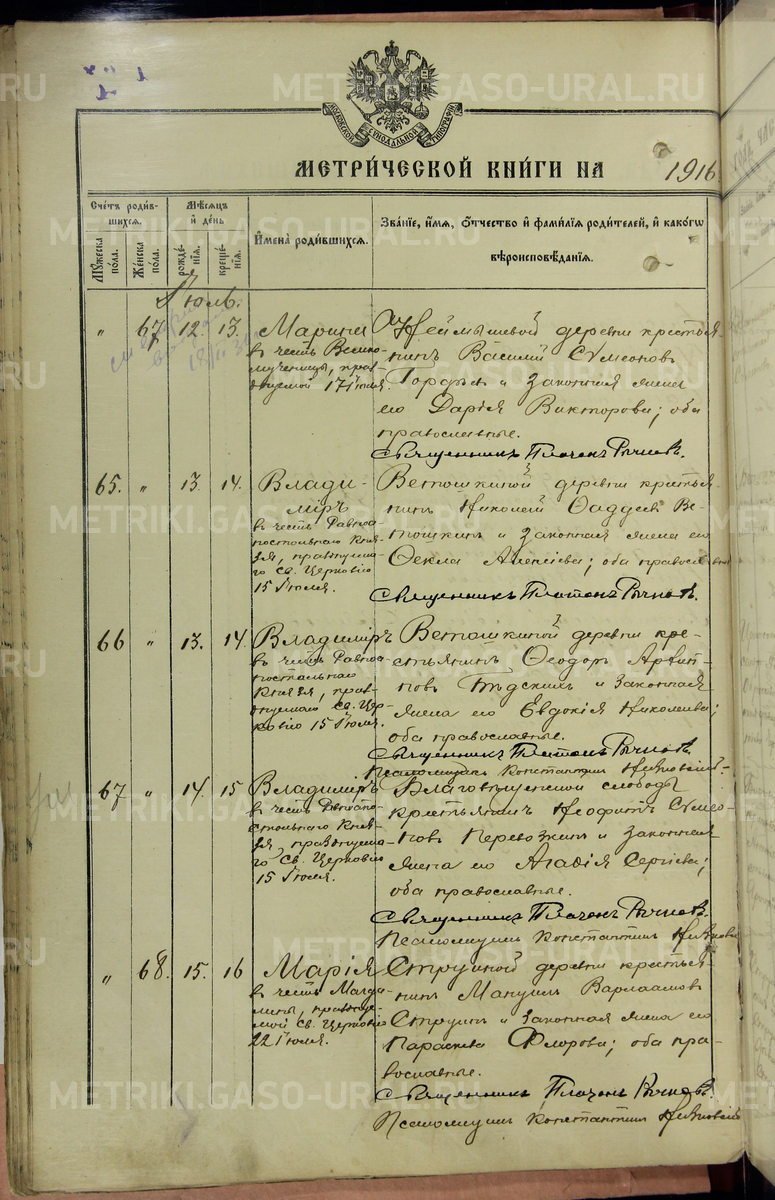 МОСКОВСКОЙ СѴНОДАЛЬНОЙ ТИПОГРАФІИ
МЕТРИ́ЧЕСКОЙ КНИ́ГИ НА 1916
Сче́тъ роди́вшихся.
Му́жеска по́ла.
Же́нска по́ла.
Мѣ́сяцъ и́ де́нь
рожде́нїѧ.
креще́нїѧ.
И҆мена̀ роди́вшихся.
Зва́нїе, и҆́мѧ, ѻ҆́тчество и҆ фами́лїѧ роди́телей, и҆ како́гѡ вѣроисповѣ́данїѧ.
Іюль.
" 67 12. 13. Марина
въ честь Велико-
мученицы, празд-
нуемой 17 Іюля.
Неймышевой деревни крестья-
нинъ Василій Сѵмеоновъ
и законная жена
его Дарія Викторова; оба
православные.
Священникъ Платонъ Рычковъ.
65. " 13. 14. Влади-
міръ
въ честь Равноа-
постольнаго Кня-
зя, празднуема-
го Св. Церковію
15 Іюля.
Ветошкиной деревни крестья-
нинъ Николай Ѳаддеевъ Ве-
тошкинъ и законная жена его
Ѳекла Алексіева; оба православные
Священникъ Платонъ Рычковъ.
66 " 13. 14. Владиміръ
въ честь Равноа-
постольнаго
Князя, празд-
нуемаго Св. Цер-
ковію 15 Іюля.
Ветошкиной деревни кре-
стьянинъ Ѳеодоръ
и законная
жена его Евдокія Николаева;
оба православные.
Священникъ Платонъ Рычковъ.
Псаломщикъ Константинъ
67 " 14. 15 Владиміръ
въ честь Равноапо-
стольнаго Кня-
зя, празднуема-
го Св. Церковію
15 Іюля.
Благовѣщенской слободы
крестьянинъ Неофитъ Сѵмео-
новъ Перевозкинъ и законная
жена его Агафія Сергіева;
оба православные.
Священникъ Платонъ Рычковъ.
Псаломщикъ Константинъ
" 68. 15. 16 Марія
въ честь Магда-
лины, празднуе-
мой Св. Церковію
22 Іюля.
деревни крестья-
нинъ Мануилъ Варлаамовъ
и законная жена его
Параскева Флорова; оба пра-
вославные.
Священникъ Платонъ Рычковъ.
Псаломщикъ Константинъ
METRIKI.GASO-URAL.RU